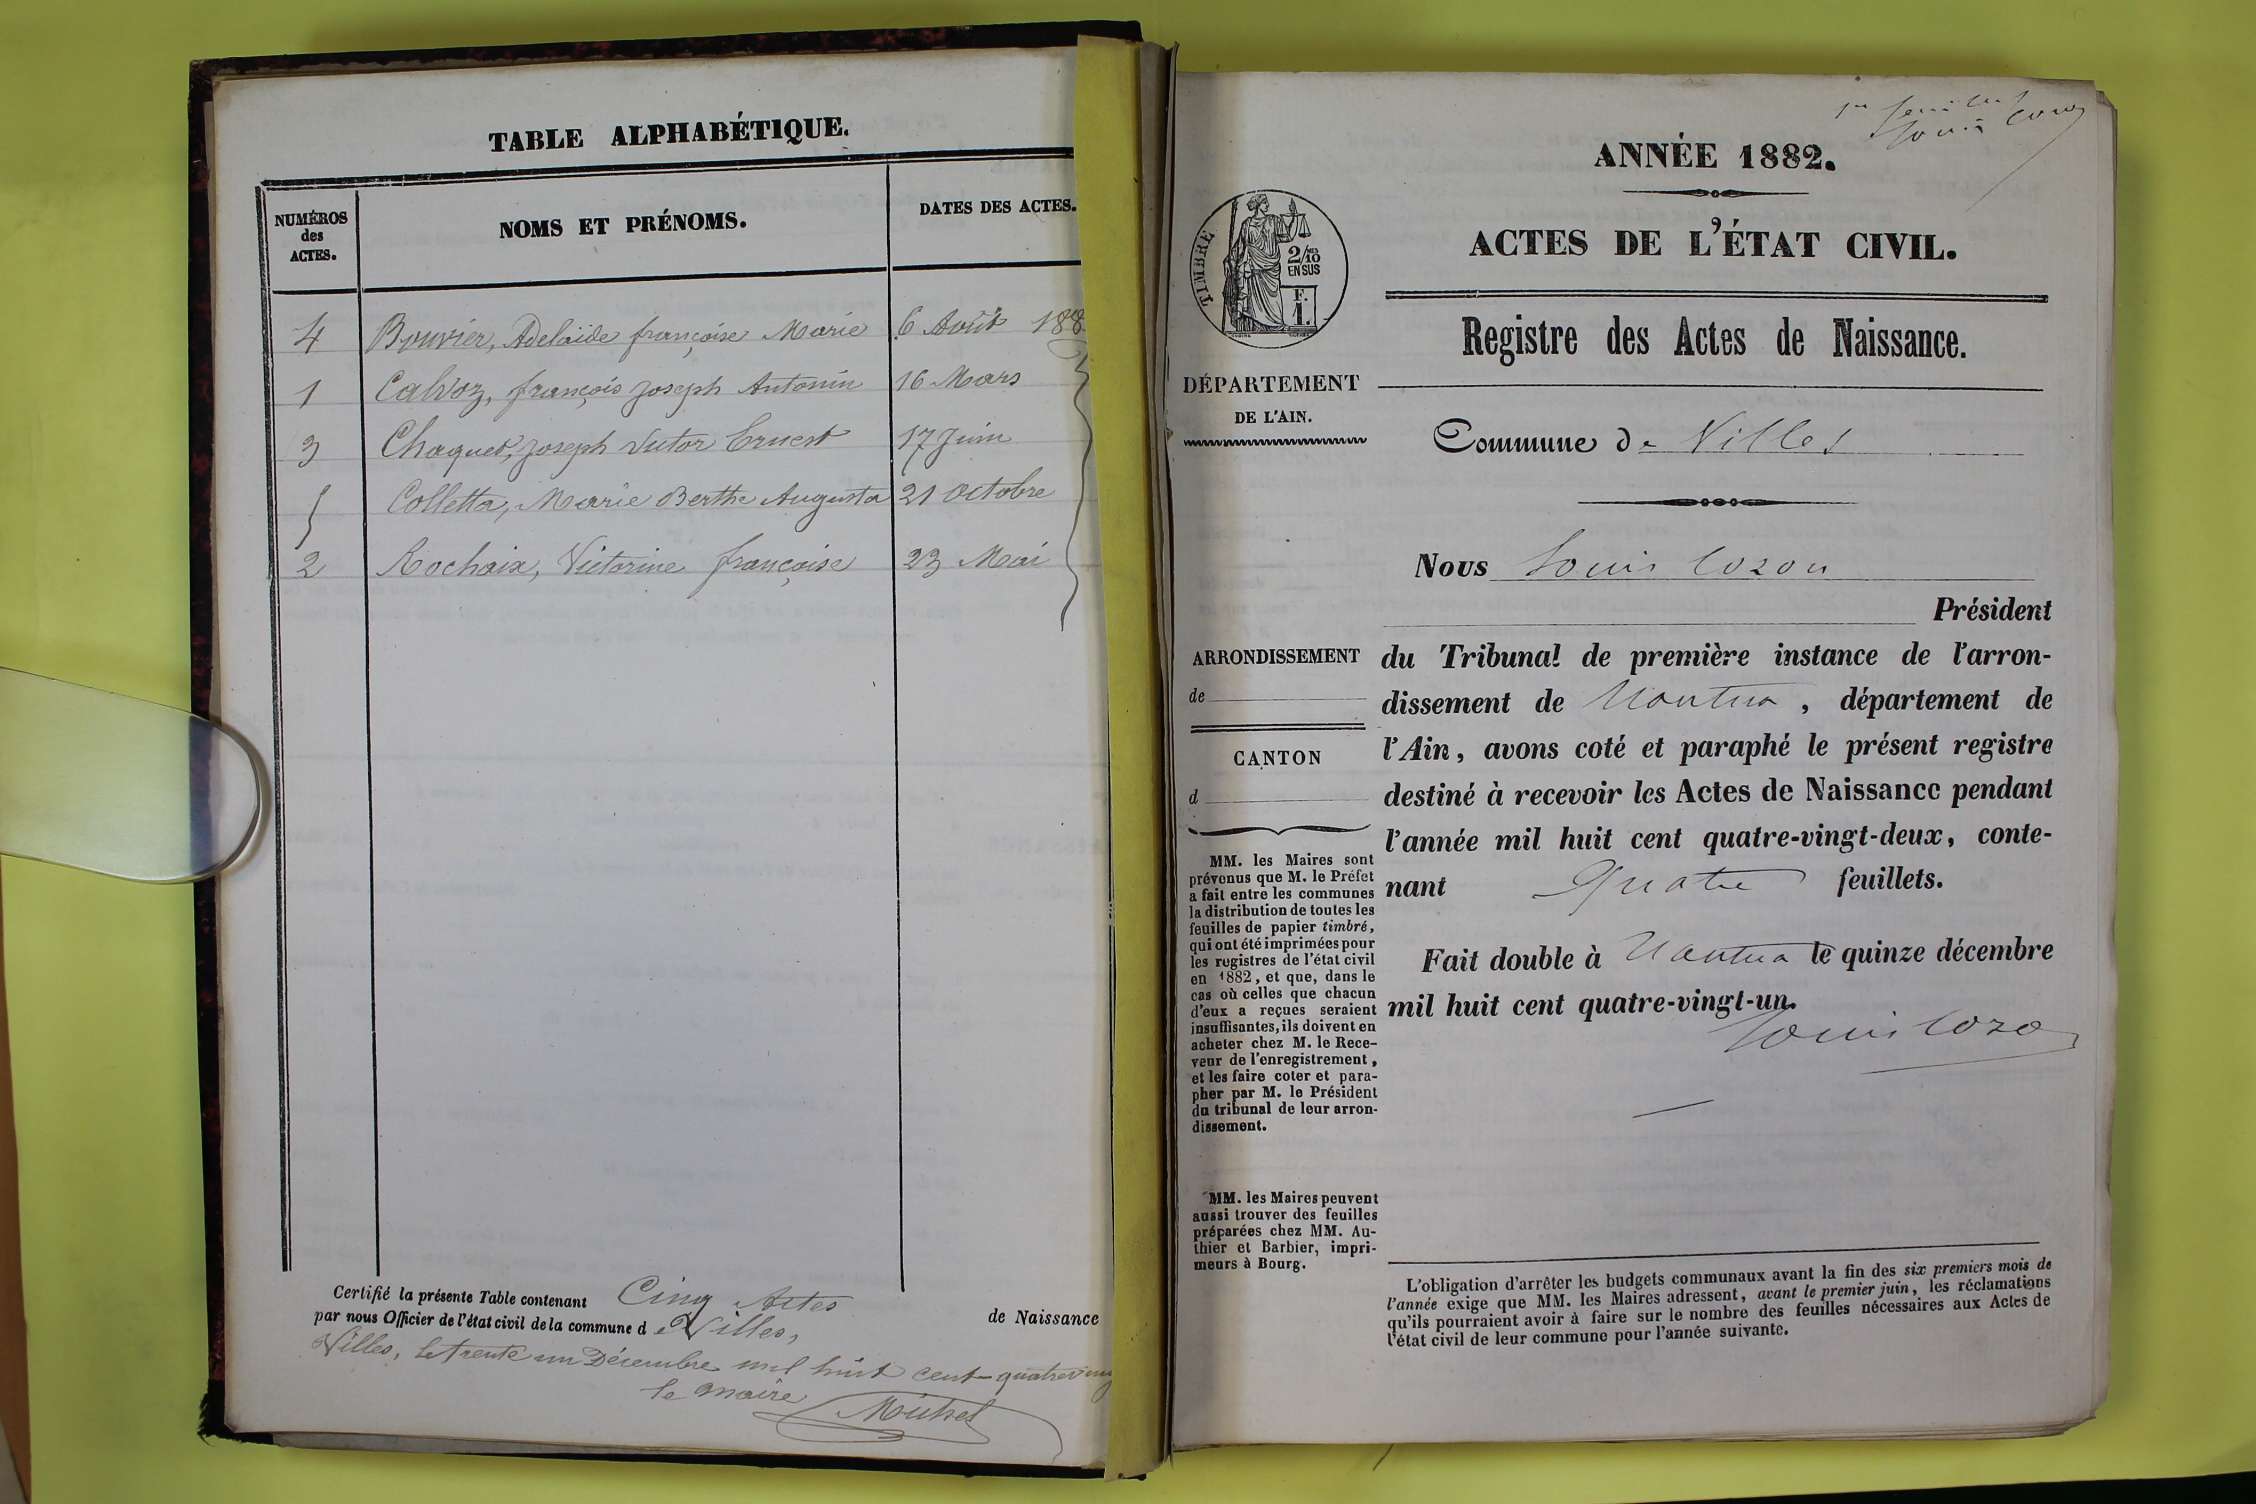 TABLE ALPHABÉTIQUE.
NUMÉROS
des
ACTES.
NOMS ET PRÉNOMS.
DATES DES ACTES.
4 Bouvier, Adelaïde françoise Marie 6 Août 188
1 Calvoz, françois Joseph Antonin 16 Mars
3 Chaquet, Joseph Victor Ernest 17 Juin
5 Colletta, Marie Berthe Augusta 21 Octobre
2 Rochaix, Victorine françoise 23 Mai
Certifié la présente Table contenant Cinq Actes de Naissance
par nous Officier de l'état civil de la commune d e Villes,
Villes, le trente un Décembre mil huit cent quatre ving
le maire
Michel
1er feuillet
Louis Cozon
ANNÉE 1882.
ACTES DE L'ÉTAT CIVIL.
TIMBRE
2/10 EN SUS
F. 1.
Registre des Actes de Naissance.
DÉPARTEMENT
DE L'AIN.
Commune de Villes
Nous Louis Cozon
Président
ARRONDISSEMENT
de
CANTON
d
du Tribunal de première instance de l'arron-
dissement de Nantua, département de
l'Ain, avons coté et paraphé le présent registre
destiné à recevoir les Actes de Naissance pendant
l'année mil huit cent quatre-vingt-deux, conte-
nant Quatre feuillets.
Fait double à Nantua le quinze décembre
mil huit cent quatre-vingt-un.
Louis Cozon
MM. les Maires sont
prévenus que M. le Préfet
a fait entre les communes
la distribution de toutes les
feuilles de papier timbré,
qui ont été imprimées pour
les registres de l'état civil
en 1882, et que, dans le
cas où celles que chacun
d'eux a reçues seraient
insuffisantes, ils doivent en
acheter chez M. le Rece-
veur de l'enregistrement,
et les faire coter et para-
pher par M. le Président
du tribunal de leur arron-
dissement.
MM. les Maires peuvent
aussi trouver des feuilles
préparées chez MM. Au-
thier et Barbier, impri-
meurs à Bourg.
L'obligation d'arrêter les budgets communaux avant la fin des six premiers mois de
l'année exige que MM. les Maires adressent, avant le premier juin, les réclamations
qu'ils pourraient avoir à faire sur le nombre des feuilles nécessaires aux Actes de
l'état civil de leur commune pour l'année suivante.